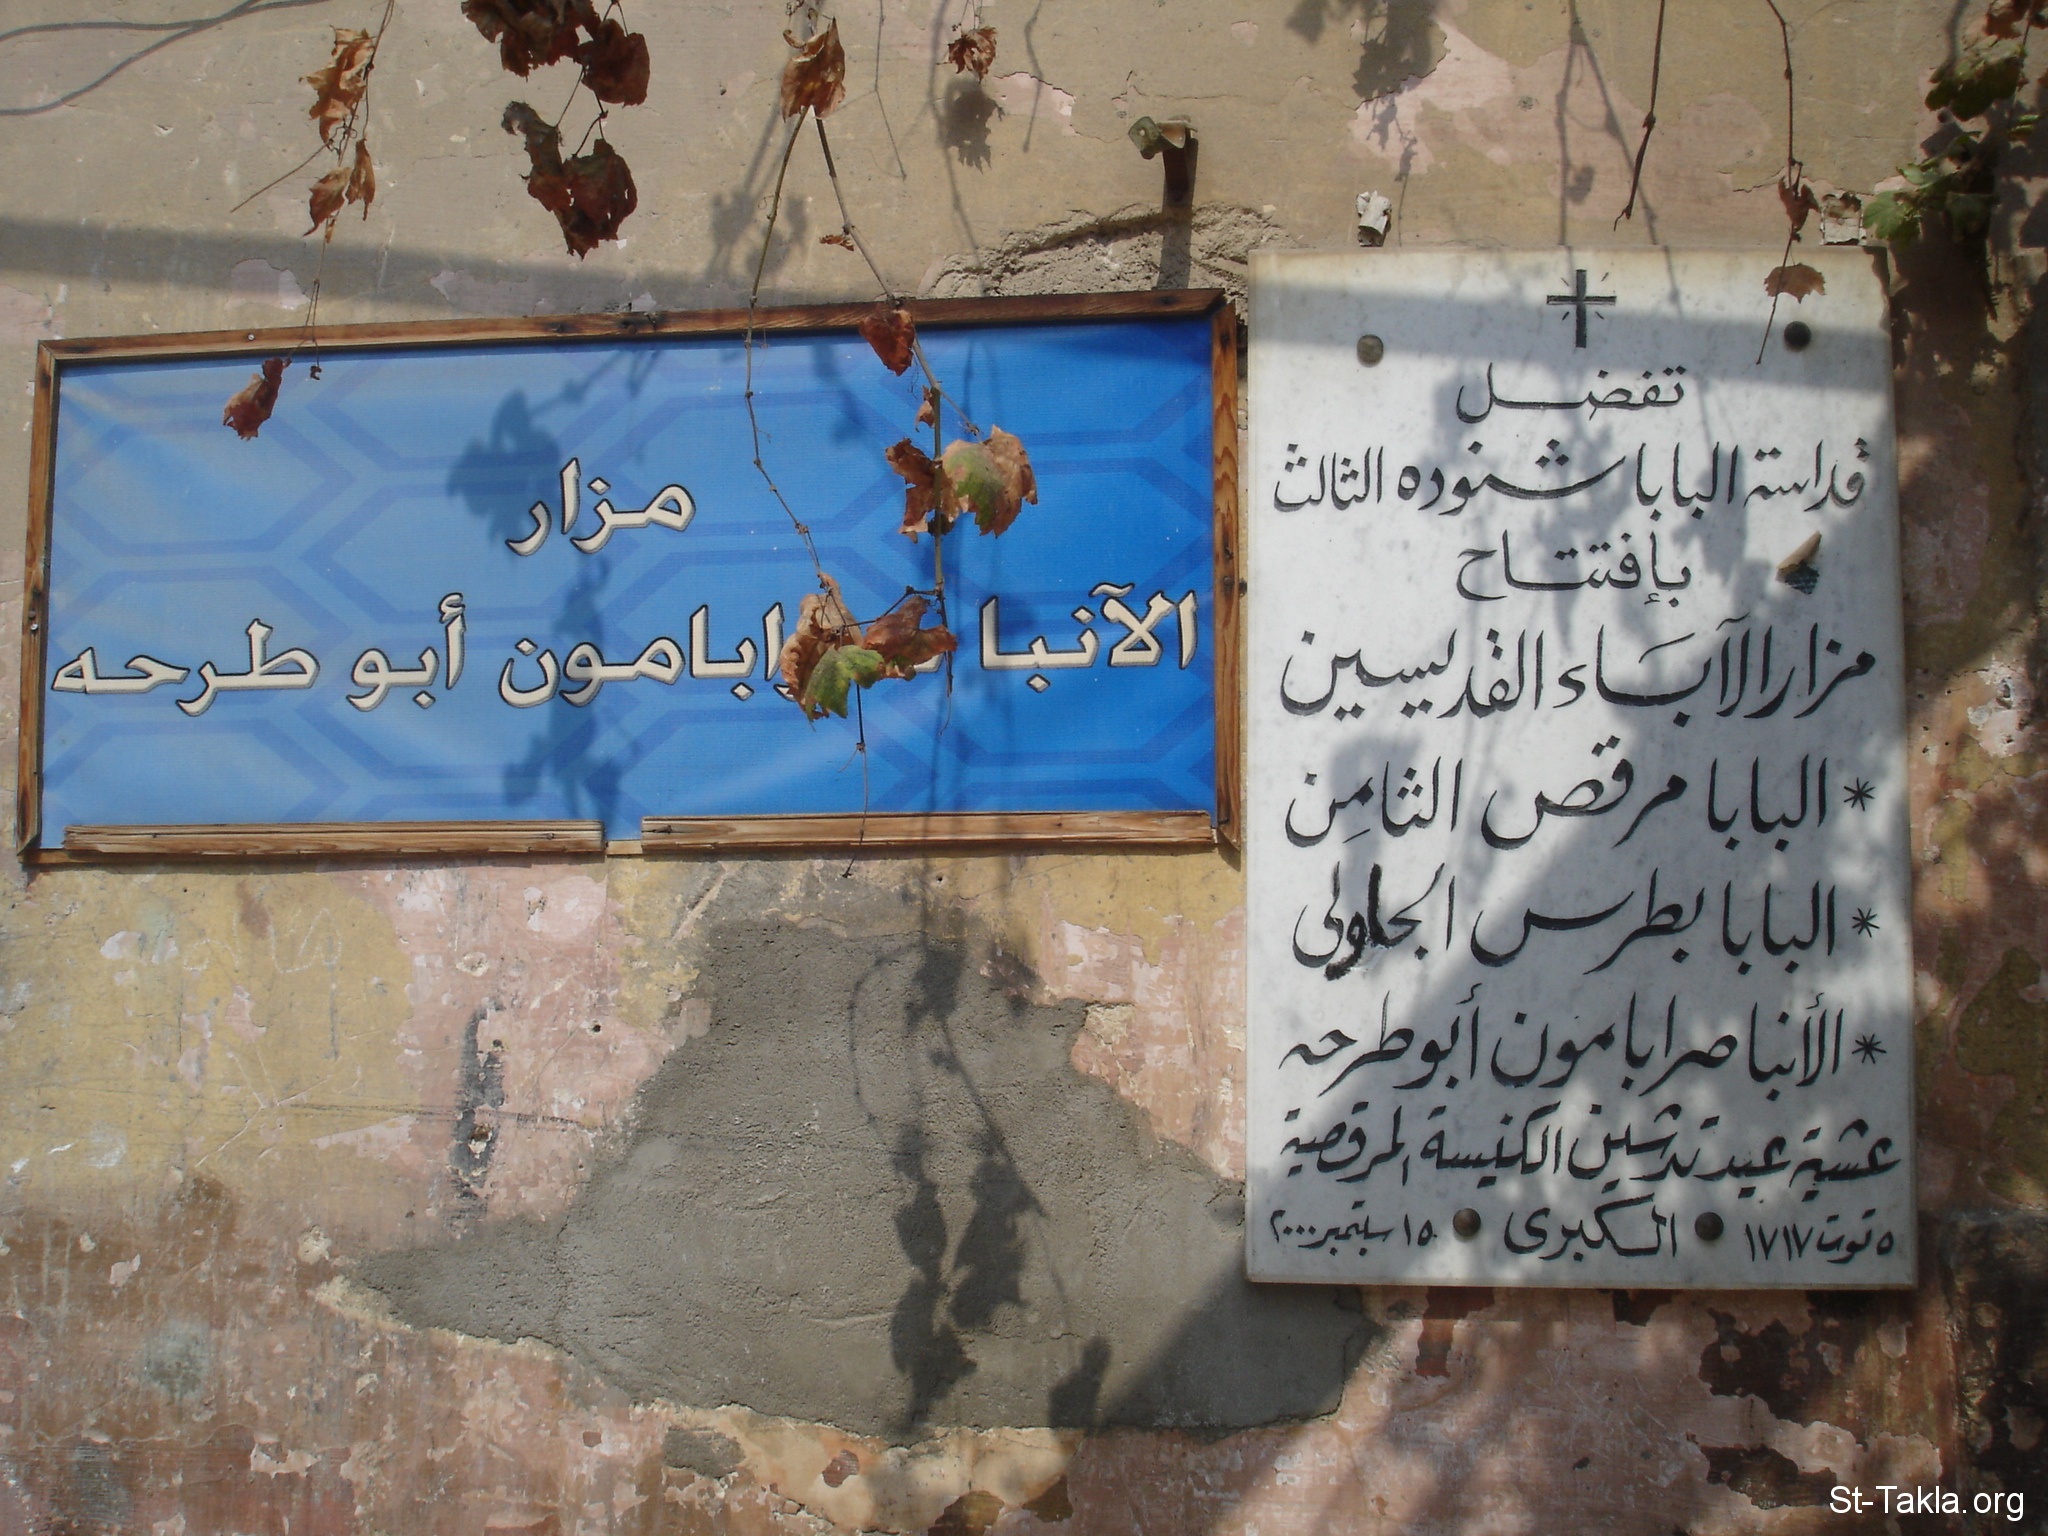 مزار
الآنبا أبو طرحه
تفضل
قداسة البابا شنوده الثالث
بإفتتاح
مزار الآباء القديسين
* البابا مرقص الثامن
* البابا بطرس الجاولى
* الأنبا صرابامون أبو طرحه
عشية عيد تدشين الكنيسة المرقصية
٥ توت ١٧١٧ الكبرى ١٥ سبتمبر ٢٠٠٠
St-Takla.org